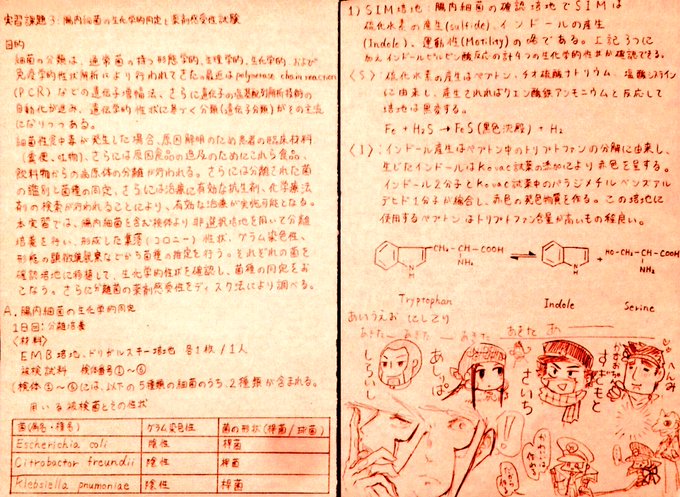 実習課題3:腸内細菌の生化学的同定と薬剤感受性試験
目的
細菌の分類は、通常菌の持つ形態学的、生理学的、生化学的、および
免疫学的性状解析により行われてきた。最近はpolymerase chain reaction
(PCR)などの遺伝子増幅法、さらに遺伝子の塩基配列解析技術の
自動化が進み、遺伝学的性状に基づく分類(遺伝子分類)がその主流
になりつつある。
細菌性食中毒が発生した場合、原因解明のため患者の臨床材料
(糞便、吐物)、さらには原因食品の追及のためにこれら食品、
飲料物からの病原体の分離が行われる。さらには分離された菌
の鑑別と菌種の同定、さらには治療に有効な抗生剤、化学療法
剤の検索が行われることにより、有効な治療が実施可能となる。
本実習では、腸内細菌を含む検体より非選択培地を用いて分離
培養を行い、形成した集落(コロニー)性状、グラム染色性、
形態の顕微鏡観察などから菌種の推定を行う。それぞれの菌を
確認培地に移植して、生化学的性状を確認し、菌種の同定をお
こなう。さらに分離菌の薬剤感受性をディスク法により調べる。
A. 腸内細菌の生化学的同定
1日目:分離培養
〈材料〉
EMB培地、ドリガルスキー培地 各1枚/1人
被検試料 検体番号①~⑥
(検体①~⑥には、以下の5種類の細菌のうち、2種類が含まれる。
用いる被検菌とその性状
菌(属名・種名) グラム染色性 菌の形状(桿菌/球菌)
Escherichia coli 陰性 桿菌
Citrobacter freundii 陰性 桿菌
Klebsiella pnumoniae 陰性 桿菌
1) SIM培地:腸内細菌の確認培地でSIMは
硫化水素の産生(sulfide)、インドールの産生
(Indole)、運動性(Motility)の略である。上記3つに
加えインドールピルビン酸反応の計4つの生化学的性状が確認できる。
〈S〉:硫化水素の産生はペプトン、チオ硫酸ナトリウム、塩酸システイン
に由来し、産生されればクエン酸鉄アンモニウムと反応して
培地は黒変する。
Fe + H2S → FeS (黒色沈殿) + H2
〈I〉:インドール産生はペプトン中のトリプトファンの分解に由来し、
生じたインドールはKovac試薬の添加により赤色を呈する。
インドール2分子とKovac試薬中のパラジメチルベンズアル
デヒド1分子が縮合し、赤色の発色物質を作る。この培地に
使用するペプトンはトリプトファン含量が高いもの程良い。
CH2-CH-COOH
NH2
N
H
N
H
+ HO-CH2-CH-COOH
NH2
Tryptophan Indole Serine
あいうえお にしこり
あきた あきた あきた あきた あ
しらいし
あしぱ
さいち
すぎもと
へんみ